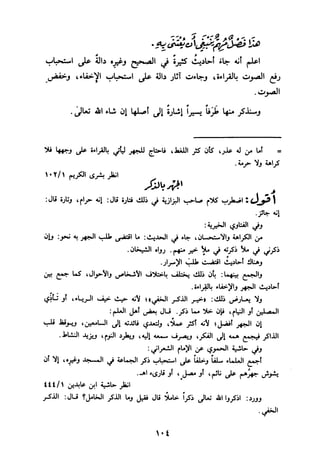 هذا فصل مهم ينبغي أن يعتنى به.
اعلم أنه جاء أحاديث كثيرة في الصحيح وغيره دالة على استحباب
رفع الصوت بالقراءة، وجاءت آثار دالة على استحباب الإخفاء، وخفض
الصوت.
وسنذكر منها طرفاً يسيراً إشارة إلى أصلها إن شاء الله تعالى.
= أما من له عذر، كأن كثر اللغط، فاحتاج للجهر ليأتي بالقراءة على وجهها فلا
كراهة ولا حرمة.
انظر بشرى الكريم ١٠٢/١
الجهر بالذكر
أقول: اضطرب كلام صاحب البزازية في ذلك فتارة قال: إنه حرام، وتارة قال:
إنه جائز.
وفي الفتاوي الخيرية:
من الكراهة والاستحسان، جاء في الحديث: ما اقتضى طلب الجهر به نحو: وإن
ذكرني في ملأ ذكرته في ملأ خير منهم. رواه الشيخان.
وهناك أحاديث اقتضت طلب الإسرار.
والجمع بينهما: بأن ذلك يختلف باختلاف الأشخاص والأحوال، كما جمع بين
أحاديث الجهر والإخفاء بالقراءة.
ولا يعارض ذلك: «خير الذكر الخفي» لأنه حيث خيف الرياء، أو تأذي
المصلين أو النيام، فإن خلا مما ذكر. قال بعض أهل العلم:
إن الجهر أفضل؛ لأنه أكثر عملاً، ولتعدي فائدته إلى السامعين، ويوقظ قلب
الذاكر فيجمع همه إلى الفكر، ويصرف سمعه إليه، ويطرد النوم، ويزيد النشاط.
وفي حاشية الحموي عن الإمام الشعراني:
أجمع العلماء سلفاً وخلفاً على استحباب ذكر الجماعة في المسجد وغيره، إلا أن
يشوش جهرهم على نائم، أو مصل، أو قارىء اهـ.
انظر حاشية ابن عابدين ٤٤٤/١
وورد: اذكروا الله تعالى ذكراً خاملاً قال فقيل وما الذكر الخامل؟ قال: الذكر
الخفي.
١٠٤